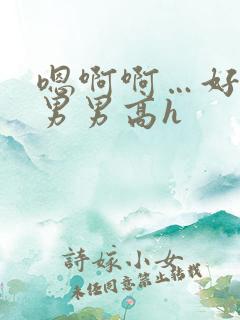 嗯啊啊…好
男男高h
詩嫁小女
未经同意禁止转载